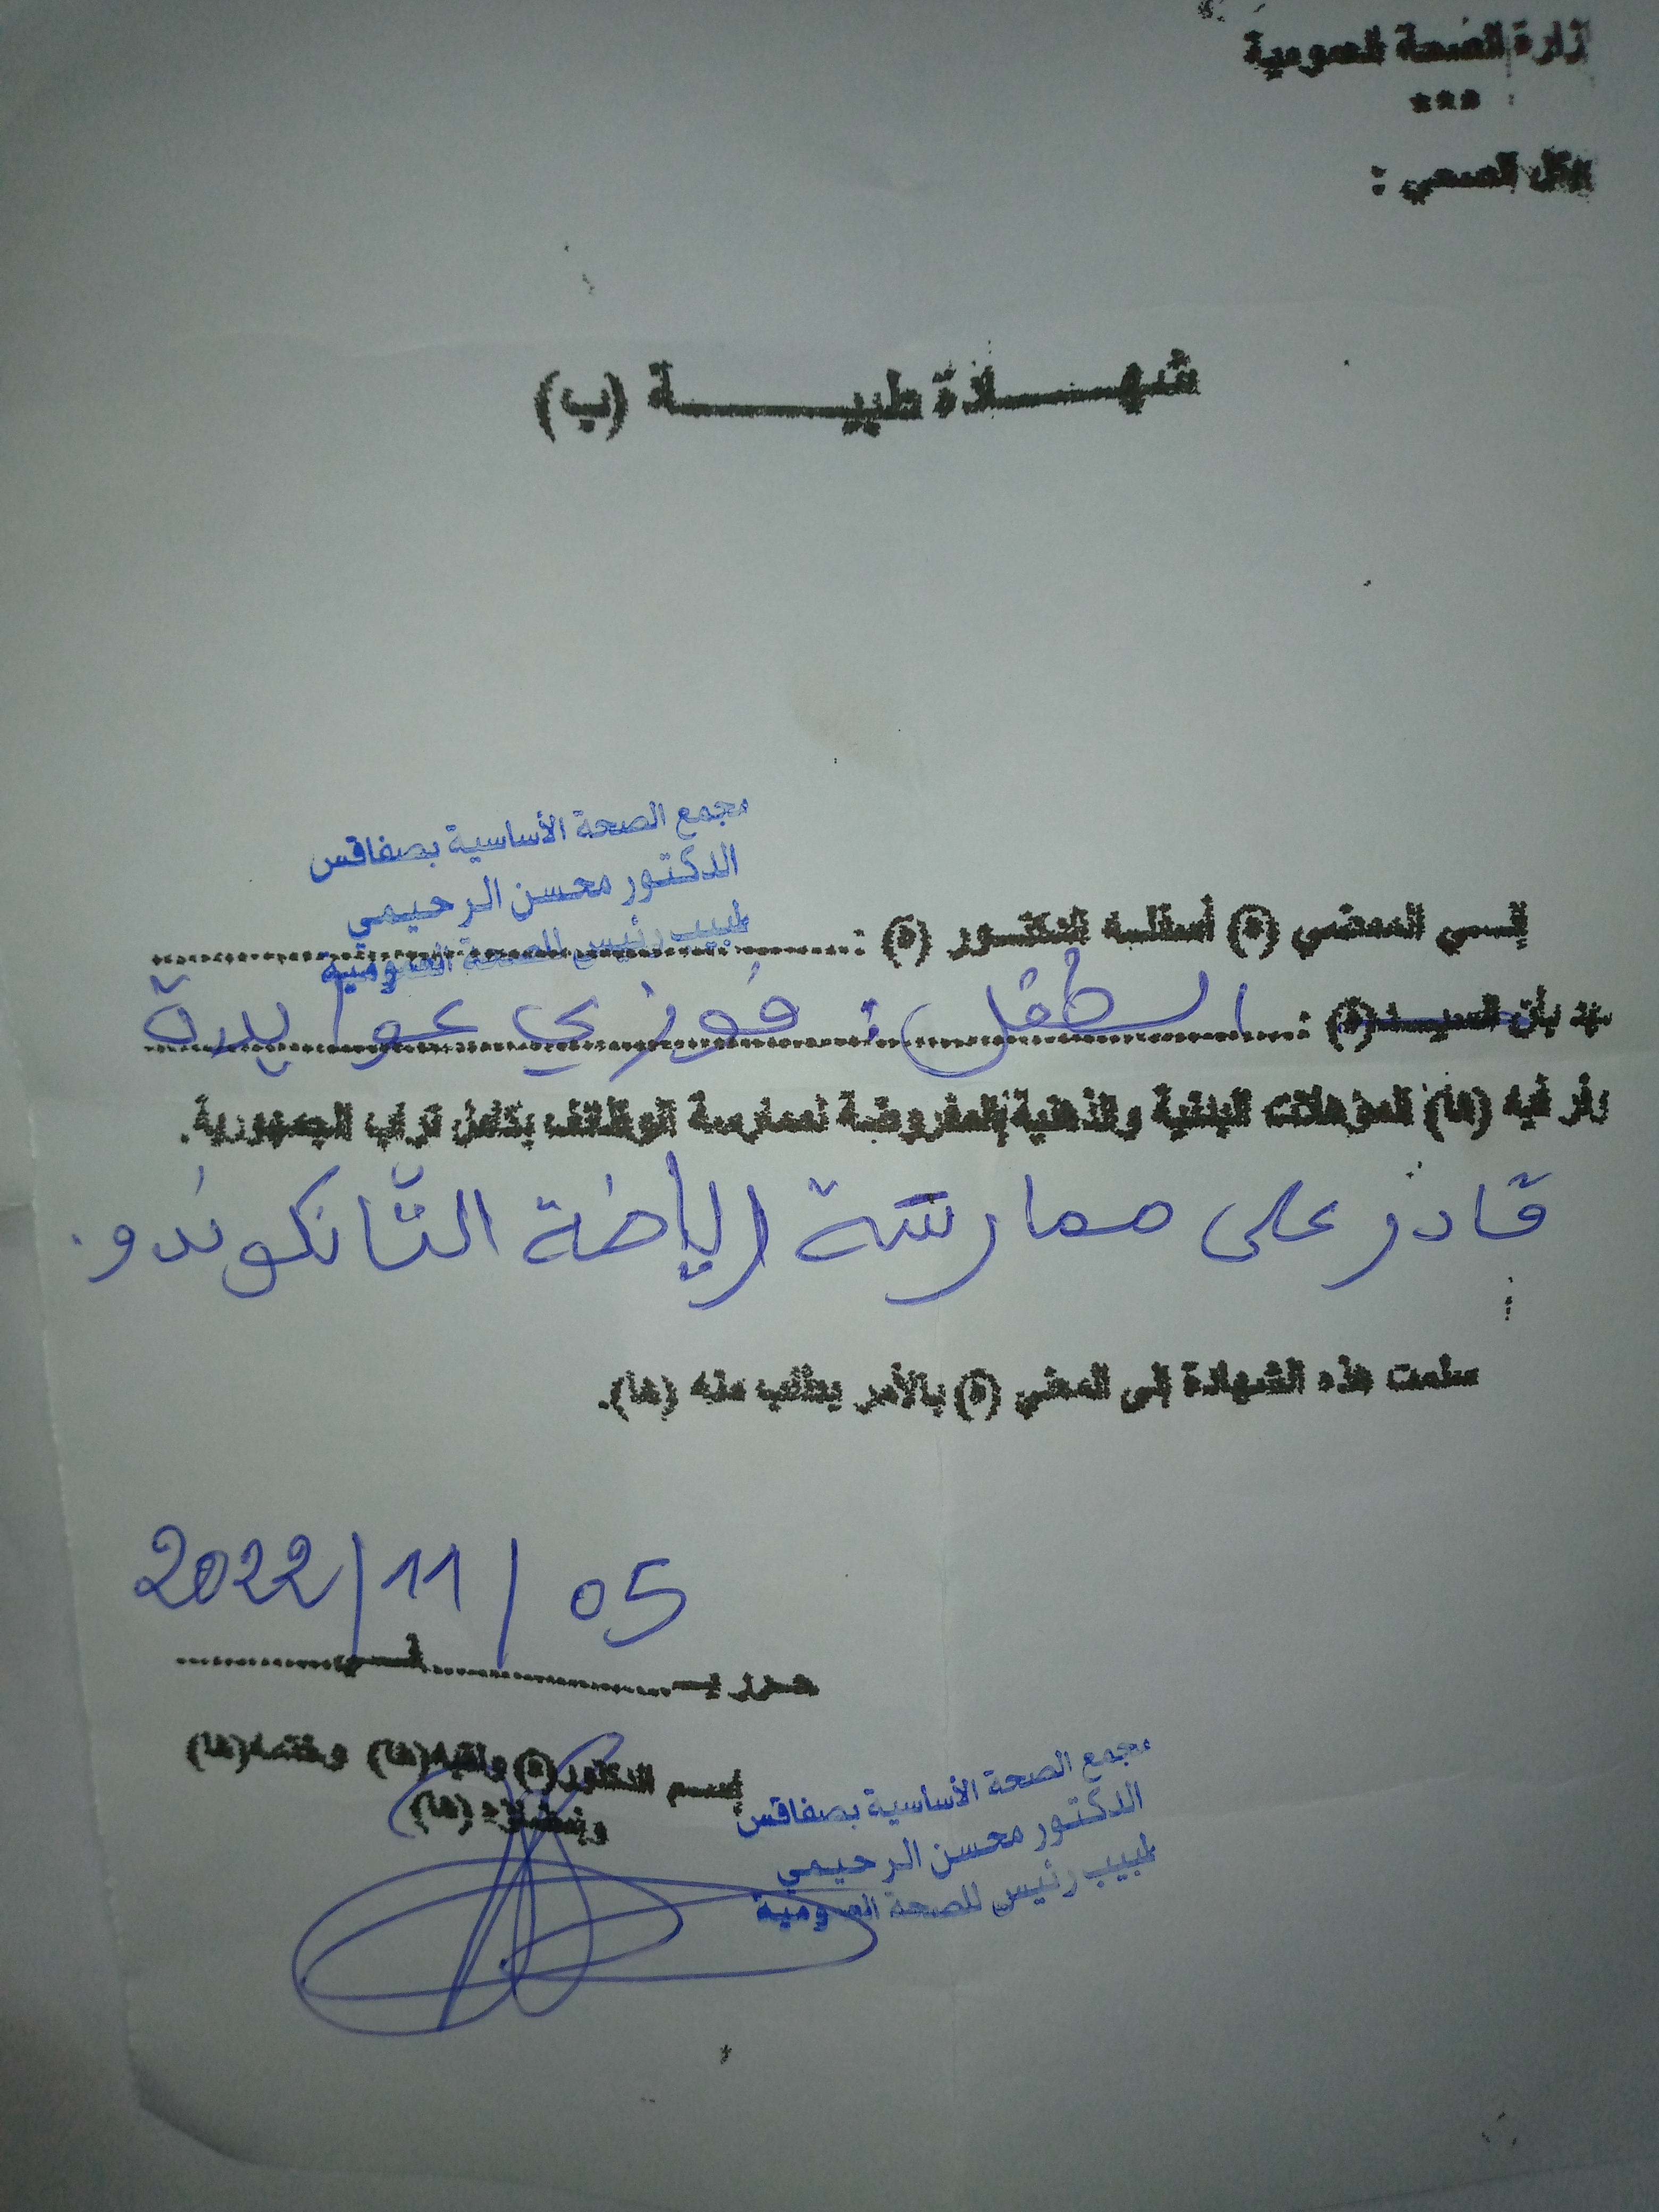 زارة الصحة العمومية
***
الصحي :
شهـــــادة طبيـــــــة (ب)
مجمع الصحة الأساسية بصفاقس
الدكتور محسن الرحيمي
طبيب رئيس للصحة العمومية
الممضي (ة) أسفله الدكتـور (ة) :
بأن السيـد(ة) : الطفل : فوزي عوايدية
فيه (ها) المؤهلات البدنية والذهنية المفروضة لممارسة الوظائف بكامل تراب الجمهورية.
قادر على ممارسة الرياضة التايكوندو.
سلمت هذه الشهادة إلى المعني (ة) بالأمر بطلب منه (ها).
05 / 11 / 2022
حرر بـ فـي
إسم الدكتور(ة) ولقبه(ها) وختمه(ها)
وإمضاؤه (ها)
مجمع الصحة الأساسية بصفاقس
الدكتور محسن الرحيمي
طبيب رئيس للصحة العمومية